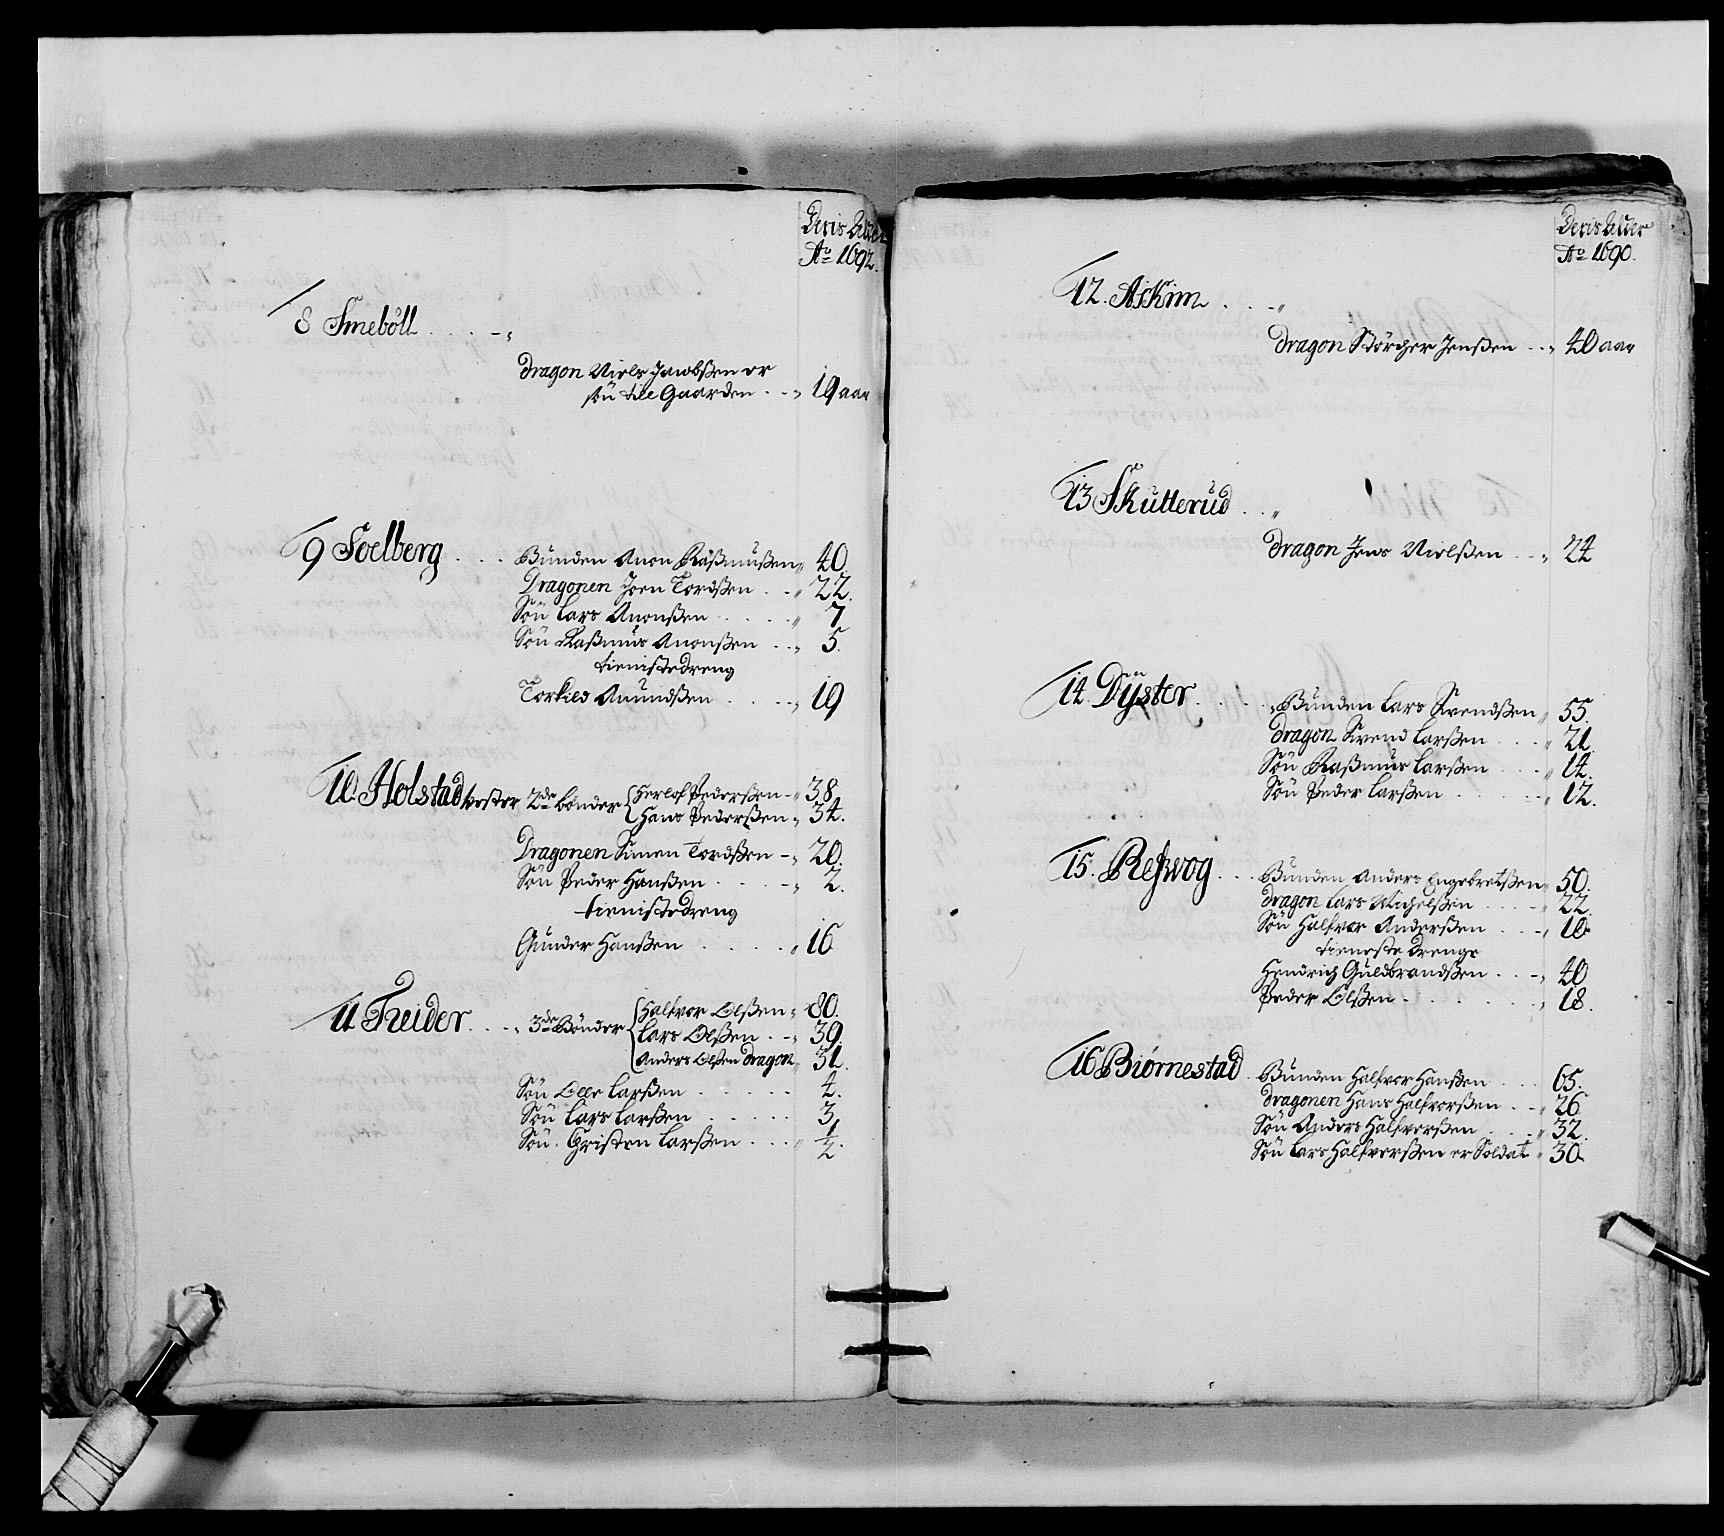 Deris Alder
Ao 1692.
8 Smeböll . . . . - "
Dragon Niels Jacobßen er
sön till Gaarden . . " 19 aar
9 Soelberg . . . . Bunden Anon Raßmußen " 40.
Dragonen Joen Tordßen . . " 22.
Sön Lars Anonßen . . . . " 7
Sön Raßmus Anonßen . . " 5.
tienistedreng
Torkild Amundßen . . . . " 19
10. Holstad vester 2de bønder { Herlof Pederßen - " 38.
Hans Pederßen " 34.
Dragonen Simen Tordßen - " 20.
Sön Peder Hanßen . . . . - " 2.
tienistedreng
Gunder Hanßen . . . . . " 16
11 Treider . . . . " 3de Bønder { Halfvor Olßen " 80.
Lars Olßen . . - " 39.
Anders Olßen dragon " 31.
Sön Olle Larßen . . . . . . 4.
Sön Lars Larßen . . . . . . 3.
Sön Christen Larßen . . . . " 1/2.
Deris Alder
Ao 1690.
12. Askim . . . . - "
Dragon Størcher Jenßen . . " 40 aar
13 Skutterud . . "
Dragon Jens Nielßen . . - " 24
14. Dÿster . . . . . " Bunden Lars Svendßen " 55.
Dragon Svend Larßen . . . . " 21.
Sön Raßmus Larßen . . . . " 14.
Sön Peder Larßen . . . . . - " 12.
15. Reswog . . . . Bunden Anders Engebretßen " 50.
Dragon Lars Michelßen . . . . - " 22.
Sön Halfvor Anderßen . . . - " 10.
tieneste drenge
Hendrich Guldbrandßen . . . - " 40
Peder Olßen . . . . . . . . " 18.
16 Biørnestad . Bunden Halfvor Hanßen . . . . 65.
Dragonen Hans Halfvorßen . . - " 26
Sön Anders Halfvorßen . . . . " 32.
Sön Lars Halfvorßen er Soldat " 30